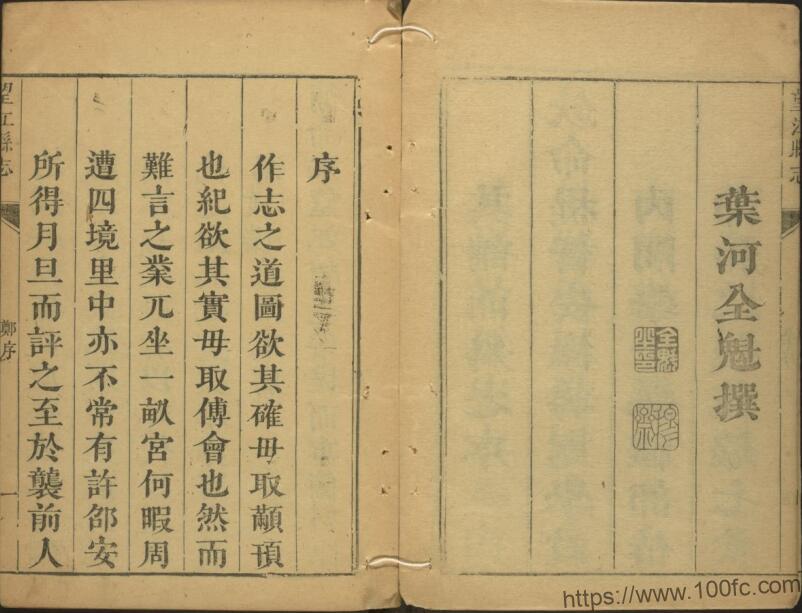 望江縣志
葉河全魁撰
全魁
序
作志之道圖欲其確毋取顢頇
也紀欲其實毋取傅會也然而
難言之業兀坐一畝宮何暇周
遭四境里中亦不常有許邵安
所得月旦而評之至於襲前人
望江縣志
鄭序
一
https://www.100fc.com